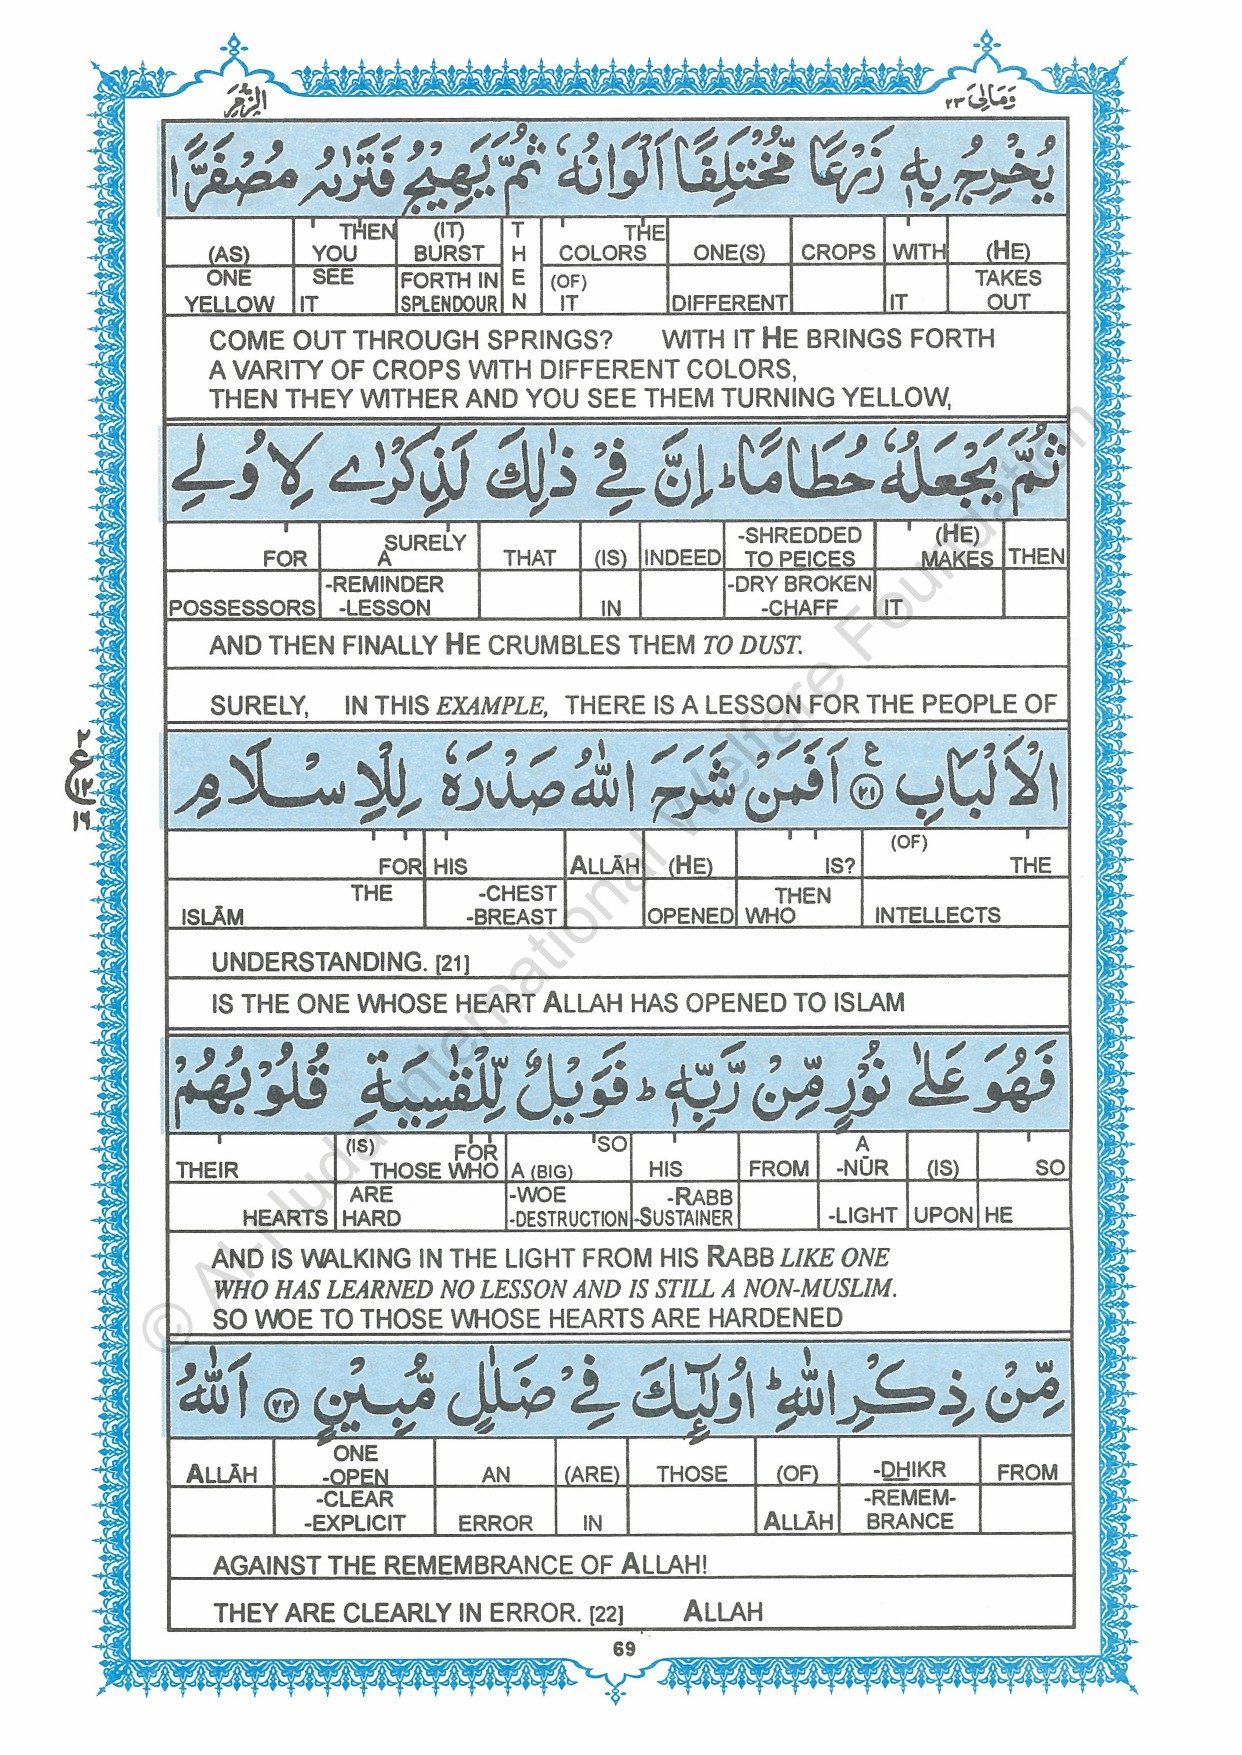 الزمر
وَمَالِيَ ٢٣
يُخْرِجُ بِهٖ زَرْعًا مُّخْتَلِفًا اَلْوَانُهٗ ثُمَّ يَهِيْجُ فَتَرٰىهُ مُصْفَرًّا
THEN (IT) T THE
(AS) YOU BURST H COLORS ONE(S) CROPS WITH (HE)
ONE SEE FORTH IN E (OF) TAKES
YELLOW IT SPLENDOUR N IT DIFFERENT IT OUT
COME OUT THROUGH SPRINGS? WITH IT HE BRINGS FORTH
A VARITY OF CROPS WITH DIFFERENT COLORS,
THEN THEY WITHER AND YOU SEE THEM TURNING YELLOW,
ثُمَّ يَجْعَلُهٗ حُطَامًا ؕ اِنَّ فِيْ ذٰلِكَ لَذِكْرٰى لِاُولِي
SURELY -SHREDDED (HE)
FOR A THAT (IS) INDEED TO PEICES MAKES THEN
-REMINDER -DRY BROKEN
POSSESSORS -LESSON IN -CHAFF IT
AND THEN FINALLY HE CRUMBLES THEM TO DUST.
SURELY, IN THIS EXAMPLE, THERE IS A LESSON FOR THE PEOPLE OF
٢
ع
١٢
١٦
الْاَلْبَابِ ع ٢١ اَفَمَنْ شَرَحَ اللّٰهُ صَدْرَهٗ لِلْاِسْلَامِ
(OF)
FOR HIS ALLĀH (HE) IS? THE
THE -CHEST THEN
ISLĀM -BREAST OPENED WHO INTELLECTS
UNDERSTANDING. [21]
IS THE ONE WHOSE HEART ALLAH HAS OPENED TO ISLAM
فَهُوَ عَلٰى نُوْرٍ مِّنْ رَّبِّهٖ ؕ فَوَيْلٌ لِّلْقٰسِيَةِ قُلُوْبُهُمْ
(IS) FOR SO A
THEIR THOSE WHO A (BIG) HIS FROM -NŪR (IS) SO
ARE -WOE -RABB
HEARTS HARD -DESTRUCTION -SUSTAINER -LIGHT UPON HE
AND IS WALKING IN THE LIGHT FROM HIS RABB LIKE ONE
WHO HAS LEARNED NO LESSON AND IS STILL A NON-MUSLIM.
SO WOE TO THOSE WHOSE HEARTS ARE HARDENED
مِّنْ ذِكْرِ اللّٰهِ ؕ اُولٰٓئِكَ فِيْ ضَلٰلٍ مُّبِيْنٍ ٢٢ اَللّٰهُ
ONE
ALLĀH -OPEN AN (ARE) THOSE (OF) -DHIKR FROM
-CLEAR -REMEM-
-EXPLICIT ERROR IN ALLĀH BRANCE
AGAINST THE REMEMBRANCE OF ALLAH!
THEY ARE CLEARLY IN ERROR. [22] ALLAH
69
© Al-Huda International Welfare Foundation